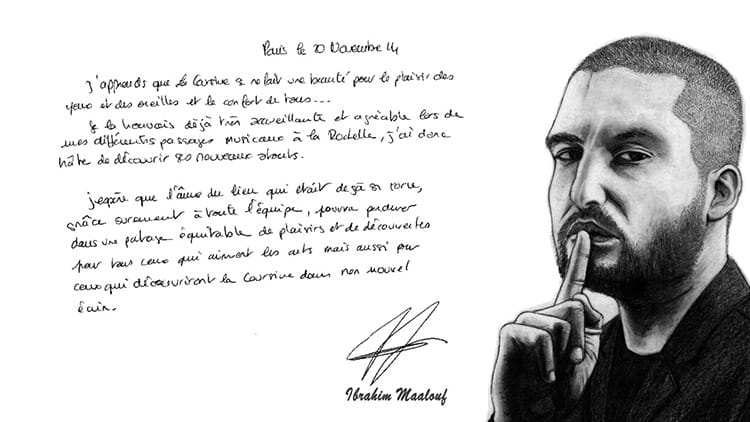 Paris le 20 Novembre 14
J'apprends que la Coursive se refait une beauté pour le plaisir des
yeux et des oreilles et le confort de tous...
Je la trouvais déjà très accueillante et agréable lors de
mes différents passages musicaux à la Rochelle, j'ai donc
hâte de découvrir ses nouveaux atouts.
J'espère que l'âme du lieu qui était déjà si
grâce surement à toute l'équipe, pourra perdurer
dans un partage équitable de plaisirs et de découvertes
pour tous ceux qui aiment les arts mais aussi pour
ceux qui découvriront la Coursive dans son nouvel
écrin.
Ibrahim Maalouf